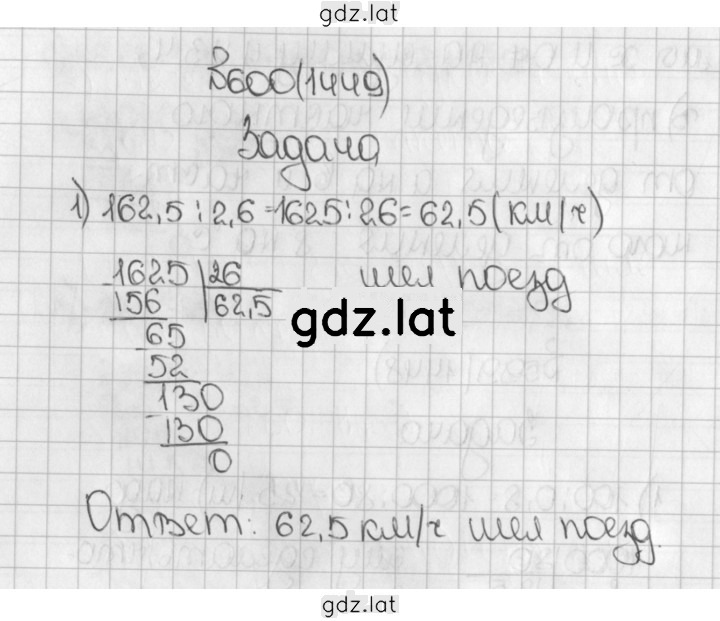 gdz.lat
В600(1449)
Задача
1) 162,5 : 2,6 = 1625 : 26 = 62,5 (км/ч)
шел поезд
1625 26
156 62,5
65
52
130
130
0
gdz.lat
Ответ: 62,5 км/ч шел поезд.
gdz.lat